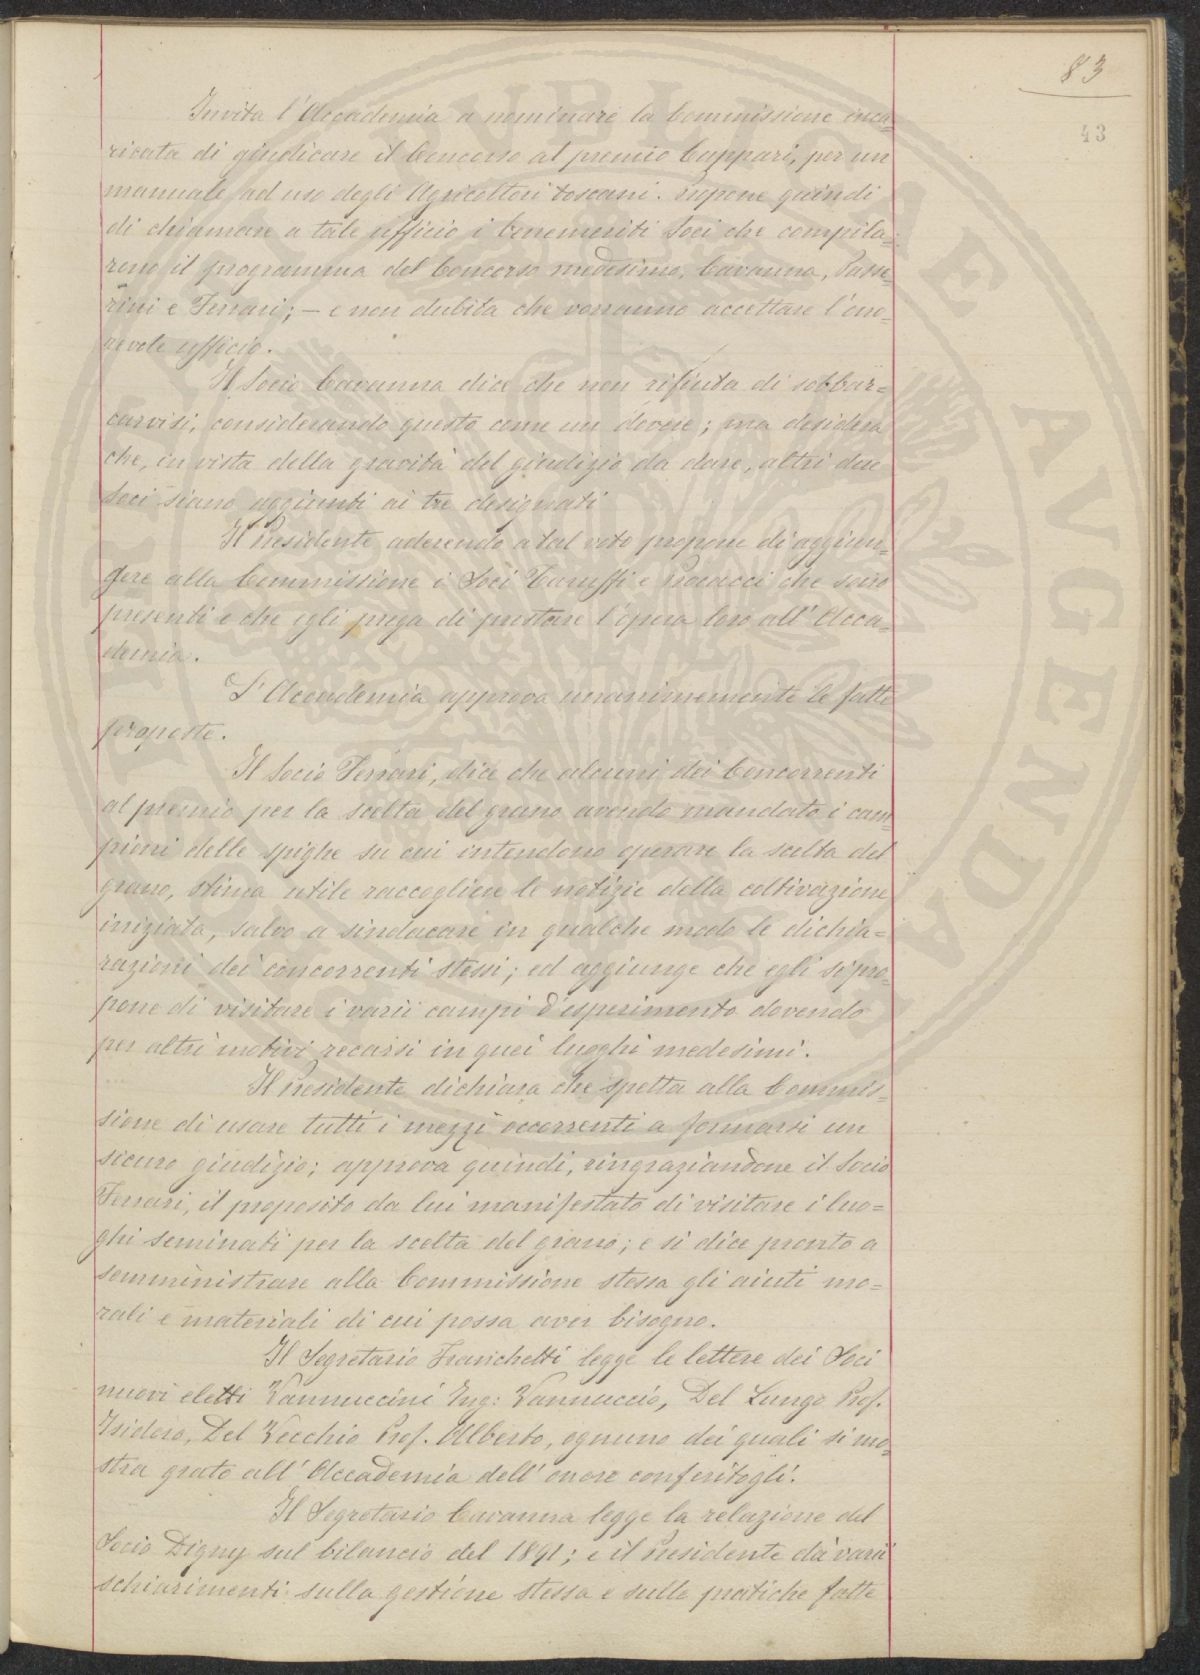 83
43
Invita l'Accademia a nominare la Commissione inca-
ricata di giudicare il Concorso al premio Cuppari, per un
manuale ad uso degli Agricoltori toscani. Propone quindi
di chiamare a tale ufficio i benemeriti Soci che compila=
rono il programma del Concorso medesimo, Cavanna, Passe-
rini e Ferrari; – e non dubita che vorranno accettare l'ono-
revole ufficio.
Il Socio Cavanna dice che non rifiuta di sobbar=
carvisi, considerando questo come un dovere; ma desidera
che, in vista della gravità del giudizio da dare, altri due
Soci siano aggiunti ai tre designati
Il Presidente aderendo a tal voto propone di aggiun-
gere alla Commissione i Soci Taruffi e Procacci che sono
presenti e che egli prega di prestare l'opera loro all'Acca-
demia.
L'Accademia approva unanimemente le fatte
proposte.
Il Socio Ferrari, dice che alcuni dei Concorrenti
al premio per la scelta del grano avendo mandato i cam-
pioni delle spighe su cui intendono operare la scelta del
grano, stima utile raccogliere le notizie della coltivazione
iniziata, salvo a sindacare in qualche modo le dichia=
razioni dei concorrenti stessi; ed aggiunge che egli si pro-
pone di visitare i varii campi d'esperimento dovendo
per altri motivi recarsi in quei luoghi medesimi.
Il Presidente dichiara che spetta alla Commis-
sione di usare tutti i mezzi occorrenti a formarsi un
sicuro giudizio; approva quindi, ringraziandone il Socio
Ferrari, il proposito da lui manifestato di visitare i luo=
ghi seminati per la scelta del grano; e si dice pronto a
somministrare alla Commissione stessa gli aiuti mo=
rali e materiali di cui possa aver bisogno.
Il Segretario Franchetti legge le lettere dei Soci
nuovi eletti Vannuccini Ing: Vannuccio, Del Lungo Prof.
Isidoro, Del Vecchio Prof. Alberto, ognuno dei quali si mo-
stra grato all'Accademia dell'onore conferitogli.
Il Segretario Cavanna legge la relazione del
Socio Digny sul bilancio del 1891; e il Presidente dà varii
schiarimenti sulla gestione stessa e sulle pratiche fatte